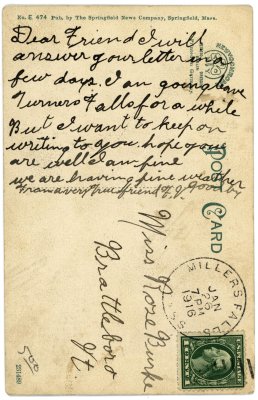 No. E 474 Pub. by The Springfield News Company, Springfield, Mass.
Dear Friend I will
answer your letter in a
few days. I an going leave
Turners Falls for a while
But I want to keep on
writing to you. hope you
are well I am fine
we are having fine weather
From a very true friend
POST CARD
Miss Rose Burke
Brattleboro
Vt.
MILLERS FALLS
MASS
JAN
7 PM
1916
1
1